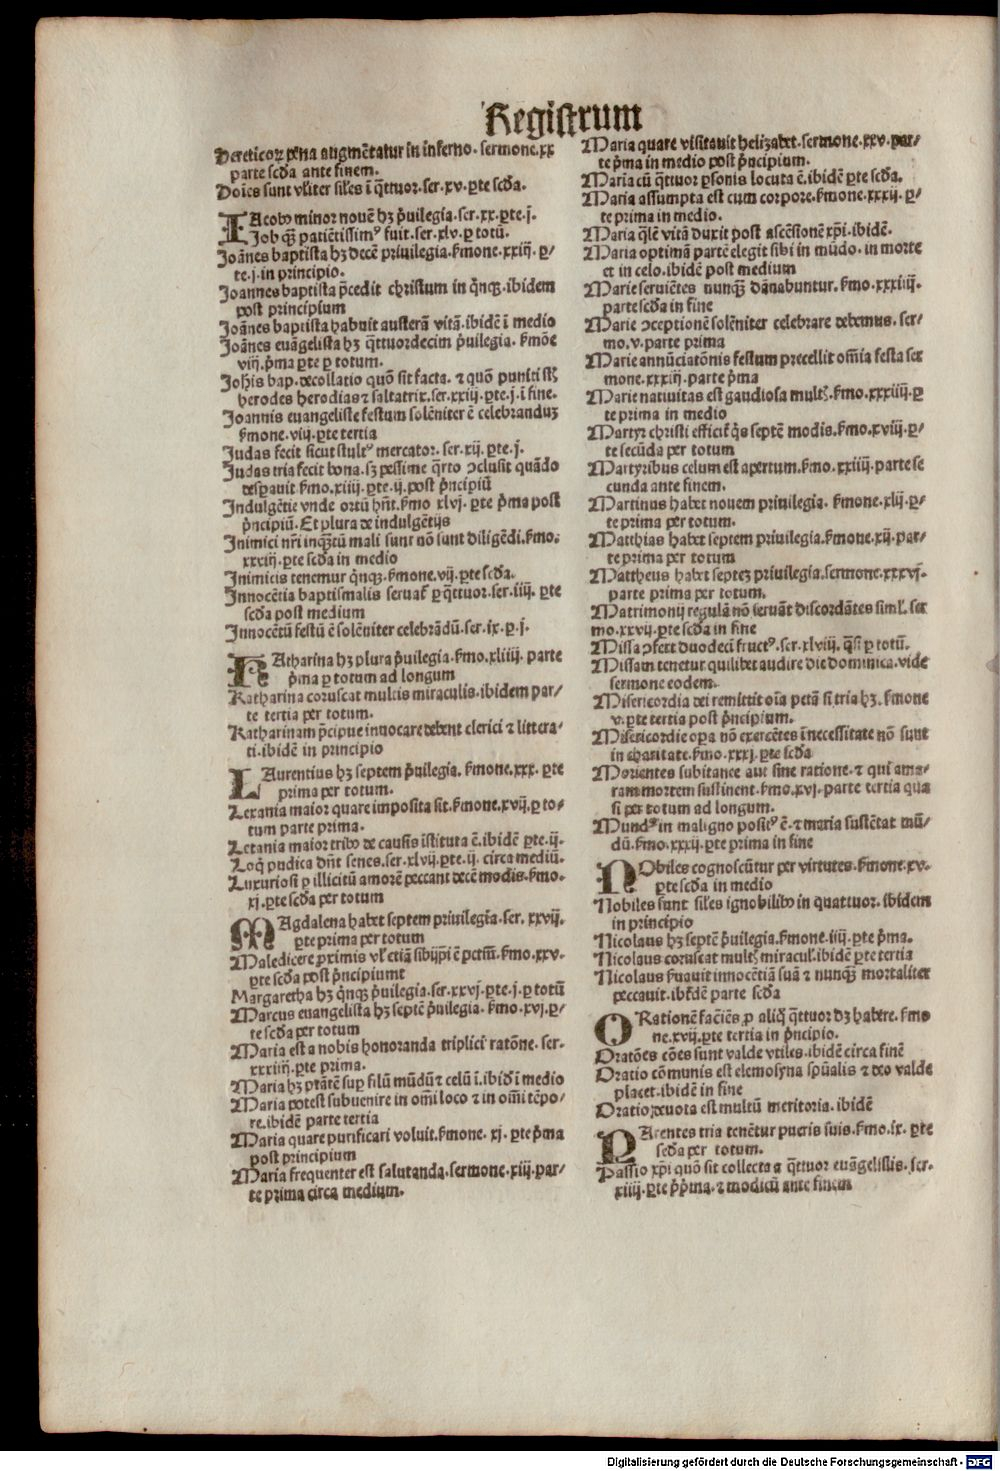 Registrum
Hereticoꝝ pena augmētatur in inferno. sermone.xx
parte scḋa ante finem.
Hoīes sunt vl̓iter sil̓es ī q̄ttuor. ser. xv. ꝑte scḋa.
IAcobꝰ minor nouē hꝫ p̄uilegia. ser. xx. ꝑte. j.
Job qꝫ patiētissimꝰ fuit. ser. xlv. ꝑ totū.
Joānes baptista hꝫ decē priuilegia. s̓mone. xxiij. ꝑ/
te. j. in principio.
Joannes baptista p̄cedit christum in q̄nqꝫ. ibidem
post principium
Joānes baptista habuit austerā vitā. ibidē ī medio
Joānes euāgelista hꝫ q̄ttuordecim p̄uilegia. s̓mōe
viij. p̄ma ꝑte ꝑ totum.
Joh̄is bap. decollatio quō sit facta. ⁊ quō puniti st̄
herodes herodias ⁊ saltatrix. ser. xxiij. ꝑte. j. ī fine.
Joannis euangeliste festum solēniter ē celebranduꝫ
s̓mone. viij. ꝑte tertia
Judas fecit sicut stultꝰ mercator. ser. xij. ꝑte. j.
Judas tria fecit bona. sꝫ pessime q̄rto ꝯclusit quādo
desꝑauit. s̓mo. xiiij. ꝑte. ij. post p̄ncipiū
Indulgētie vnde ortū hn̄t. s̓mo xlvj. ꝑte p̄ma post
p̄ncipiū. Et plura de indulgētijs
Inimici nr̄i inqꝫtū mali sunt nō sunt diligēdi. s̓mo.
xxxiij. ꝑte scḋa in medio
Inimicis tenemur q̄nqꝫ. s̓mone. vij. ꝑte scḋa.
Innocētia baptismalis seruat̄ ꝑ q̄ttuor. ser. iiij. ꝑte
scḋa post medium
Innocētū festū ē solēniter celebrādū. ser. ix. ꝑ. j.
KAtharina hꝫ plura p̄uilegia. s̓mo. xliiij. parte
p̄ma ꝑ totum ad longum
Katharina coruscat multis miraculis. ibidem par/
te tertia per totum.
Katharinam p̄cipue inuocare debent clerici ⁊ littera-
ti. ibidē in principio
LAurentius hꝫ septem p̄uilegia. s̓mone. xxx. ꝑte
prima per totum.
Letania maior quare imposita sit. s̓mone. xvij. ꝑ to-
tum parte prima.
Letania maior tribꝰ de causis īstituta ē. ibidē ꝑte. ij.
Loq̄ pudica dn̄t senes. ser. xlvij. ꝑte. ij. circa mediū.
Luxuriosi ꝑ illicitū amorē peccant decē modis. s̓mo.
xj. ꝑte scḋa per totum
MAgdalena habet septem priuilegia. ser. xxvij.
ꝑte prima per totum
Maledicere proximis vl̓ etiā sibijp̄i ē pctm̄. s̓mo. xxv.
ꝑte scḋa post p̄ncipiumt
Margaretha hꝫ q̄nqꝫ p̄uilegia. ser. xxvj. ꝑte. j. ꝑ totū
Marcus euangelista hꝫ septē p̄uilegia. s̓mo. xvj. ꝑ/
te scḋa per totum
Maria est a nobis honoranda triplici ratōne. ser.
xxxiiij. ꝑte prima.
Maria hꝫ ptātē suꝑ filū mūdū ⁊ celū ī. ibid̄ ī medio
Maria potest subuenire in om̄i loco ⁊ in om̄i tēpo/
re. ibidē parte tertia
Maria quare purificari voluit. s̓mone. xj. ꝑte p̄ma
post principium
Maria frequenter est salutanda. sermone. xiij. par/
te prima circa medium.
Maria quare visitauit helizabet. sermone. xxv. par-
te p̄ma in medio post p̄ncipium.
Maria cū q̄ttuor ꝑsonis locuta ē. ibidē ꝑte scḋa.
Maria assumpta est cum corpore. s̓mone. xxxij. ꝑ-
te prima in medio.
Maria q̄lē vitā duxit post ascēsionē xp̄i. ibidē.
Maria optimā partē elegit sibi in mūdo. in morte
et in celo. ibidē post medium
Marie seruiētes nunqꝫ dānabuntur. s̓mo. xxxiiij.
parte scḋa in fine
Marie ꝯceptionē solēniter celebrare debemus. ser-
mo. v. parte prima
Marie annūciatōnis festum precellit om̄ia festa ser
mone. xxxiij. parte p̄ma
Marie natiuitas est gaudiosa mult̄. s̓mo. xxxiiij. ꝑ
te prima in medio
Martyr christi efficit̄ q̄s septē modis. s̓mo. xviij. ꝑ/
te secūda per totum
Martyribus celum est apertum. s̓mo. xxiiij. parte se
cunda ante finem.
Martinus habet nouem priuilegia. s̓mone. xlij. ꝑ/
te prima per totum.
Matthias habet septem priuilegia. s̓mone. xij. par-
te prima per totum
Mattheus habet septeꝫ priuilegia. sermone. xxxvj.
parte prima per totum.
Matrimonij regulā nō seruāt discordātes siml̓. ser
mo. xxvij. ꝑte scḋa in fine
Missa ꝯfert duodecī fructꝰ. ser. xlviij. q̄si ꝑ totū.
Missam tenetur quilibet audire die dominica. vide
sermone eodem.
Misericordia dei remittit oīa petā si tria hꝫ. s̓mone
v. ꝑte tertia post p̄ncipium.
Misericordie oꝑa nō exercētes ī necessitate nō sunt
in charitate. s̓mo. xxxj. ꝑte scḋa
Morientes subitanee aut sine ratione. ⁊ qui ama-
ram mortem sustinent. s̓mo. xvj. parte tertia qua
si per totum ad longum.
Mundꝰ in maligno positꝰ ē. ⁊ maria sustētat mū/
dū. s̓mo. xxxij. ꝑte prima in fine
NObiles cognoscūtur per virtutes. s̓mone. xv.
ꝑte scḋa in medio
Nobiles sunt sil̓es ignobilibꝰ in quattuor. ibidem
in principio
Nicolaus hꝫ septē p̄uilegia. s̓mone. iiij. ꝑte p̄ma.
Nicolaus coruscat mult̄ miracul̓. ibidē ꝑte tertia
Nicolaus s̓uauit innocētiā suā ⁊ nunqꝫ mortaliter
peccauit. ibidē parte scḋa
ORationē faciēs ꝓ aliq̄ q̄ttuor dꝫ habere. s̓mo
ne. xvij. ꝑte tertia in p̄ncipio.
Oratōes cōes sunt valde vtiles. ibidē circa finē
Oratio cōmunis est elemosyna spūalis ⁊ deo valde
placet. ibidē in fine
Oratio deuota est multū meritoria. ibidē
PArentes tria tenētur pueris suis. s̓mo. ix. ꝑte
scḋa per totum.
Passio xp̄i quō sit collecta a q̄ttuor euāgelistis. ser.
xiiij. ꝑte p̄p̄ma. ⁊ modicū ante finem
Digitalisierung gefördert durch die Deutsche Forschungsgemeinschaft - DFG